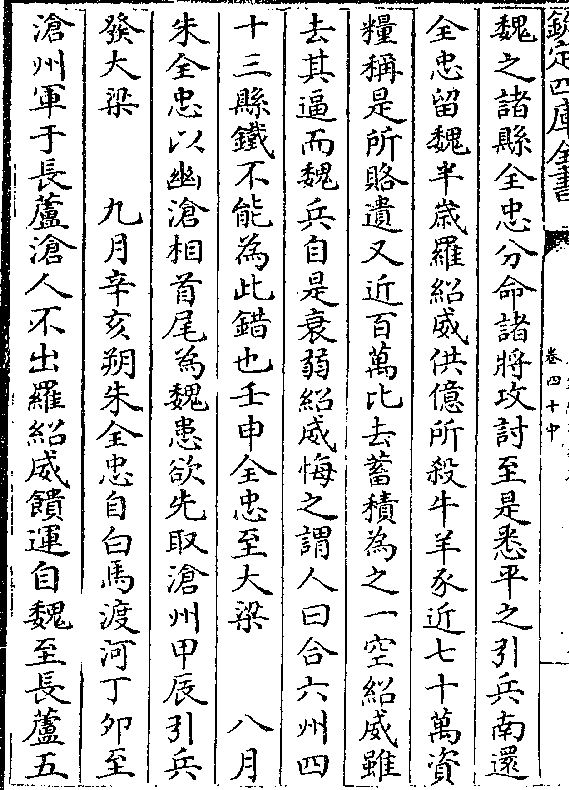 欽定四庫全書
卷四十中
魏之諸縣全忠分命諸將攻討至是悉平之引兵南還
全忠留魏半歳羅紹威供億所殺牛羊豕近七十萬資
糧稱是所賂遺又近百萬比去蓄積為之一空紹威雖
去其逼而魏兵自是衰弱紹威悔之謂人曰合六州四
十三縣鐵不能為此錯也壬申全忠至大梁　八月
朱全忠以幽滄相首尾為魏患欲先取滄州甲辰引兵
發大梁　九月辛亥朔朱全忠自白馬渡河丁卯至
滄州軍于長蘆滄人不出羅紹威饋運自魏至長蘆五